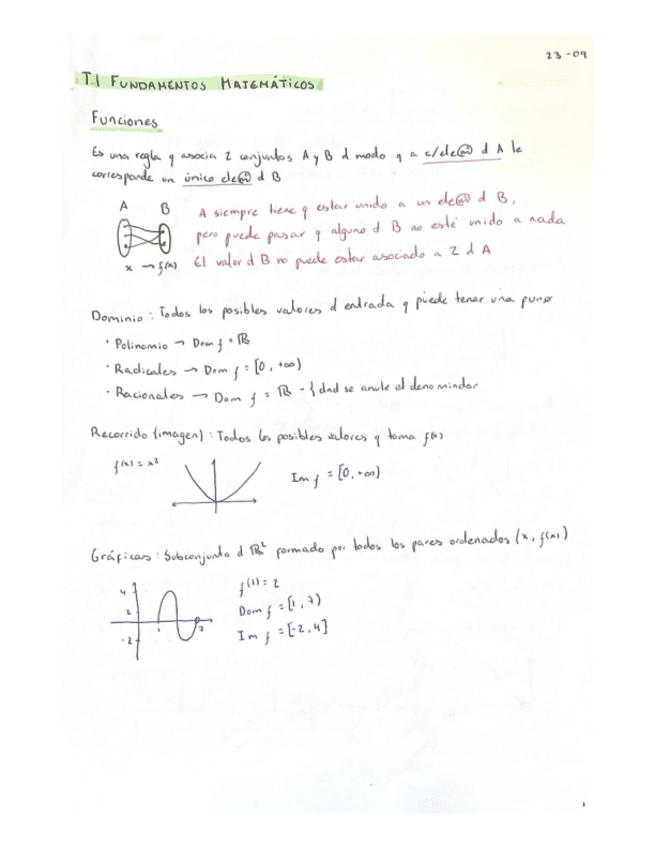 23-09
T.1 FUNDAMENTOS MATEMÁTICOS
Funciones
Es una regla q asocia 2 conjuntos A y B d modo q a c/ele@ d A le
corresponde un único ele@ d B
A B
x → f(x)
A siempre tiene q estar unido a un ele@ d B,
pero puede pasar q alguno d B no esté unido a nada
El valor d B no puede estar asociado a 2 d A
Dominio: Todos los posibles valores d entrada q puede tener una
· Polinomio → Dom f = ℝ
· Radicales → Dom f = [0, +∞)
· Racionales → Dom f = ℝ - { dnd se anule el denominador
Recorrido (imagen): Todos los posibles valores q toma f(x)
f(x) = x²
Im f = [0, +∞)
Gráficas: Subconjunto d ℝ² formado por todos los pares ordenados (x, f(x))
4
2
-2
1
7
f(1) = 2
Dom f = [1, 7)
Im f = [-2, 4]
1